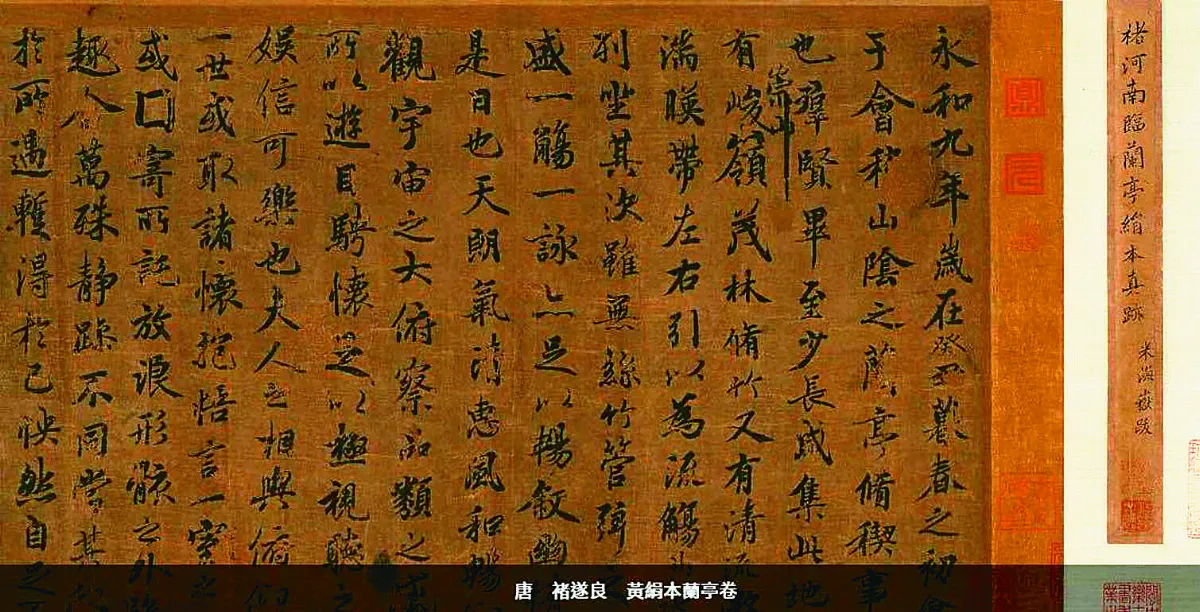 褚河南臨蘭亭絹本真跡
米海嶽跋
永和九年歲在癸丑暮春之初會
于會稽山陰之蘭亭脩稧事
也羣賢畢至少長咸集此地
有崇山峻嶺茂林脩竹又有清流
湍暎帶左右引以為流觴
列坐其次雖無絲竹管弦
盛一觴一詠亦足以暢叙幽
是日也天朗氣清惠風和暢
觀宇宙之大俯察品類之
所以遊目騁懷足以極視聽之
娛信可樂也夫人之相與俯仰
一世或取諸懷抱悟言一室之
或因寄所託放浪形骸之外
趣舍萬殊静躁不同當其
於所遇蹔得於己快然自足
唐 褚遂良 黃絹本蘭亭卷